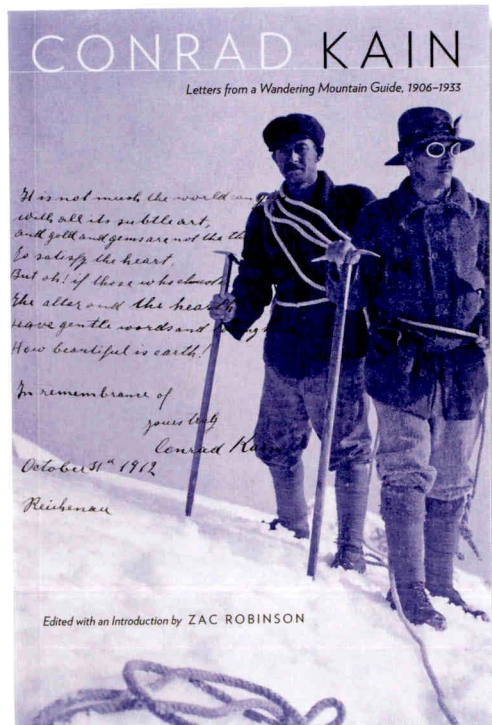 CONRAD KAIN
Letters from a Wandering Mountain Guide, 1906–1933
It is not much the world can
with all its subtle art,
and gold and gems are not the th
To satisfy the heart,
But oh! if those who
The altar and the hearth
Have gentle words and
How beautiful is earth!
In remembrance of
yours truly
Conrad Kain
October 31st 1912
Reichenau
Edited with an Introduction by ZAC ROBINSON